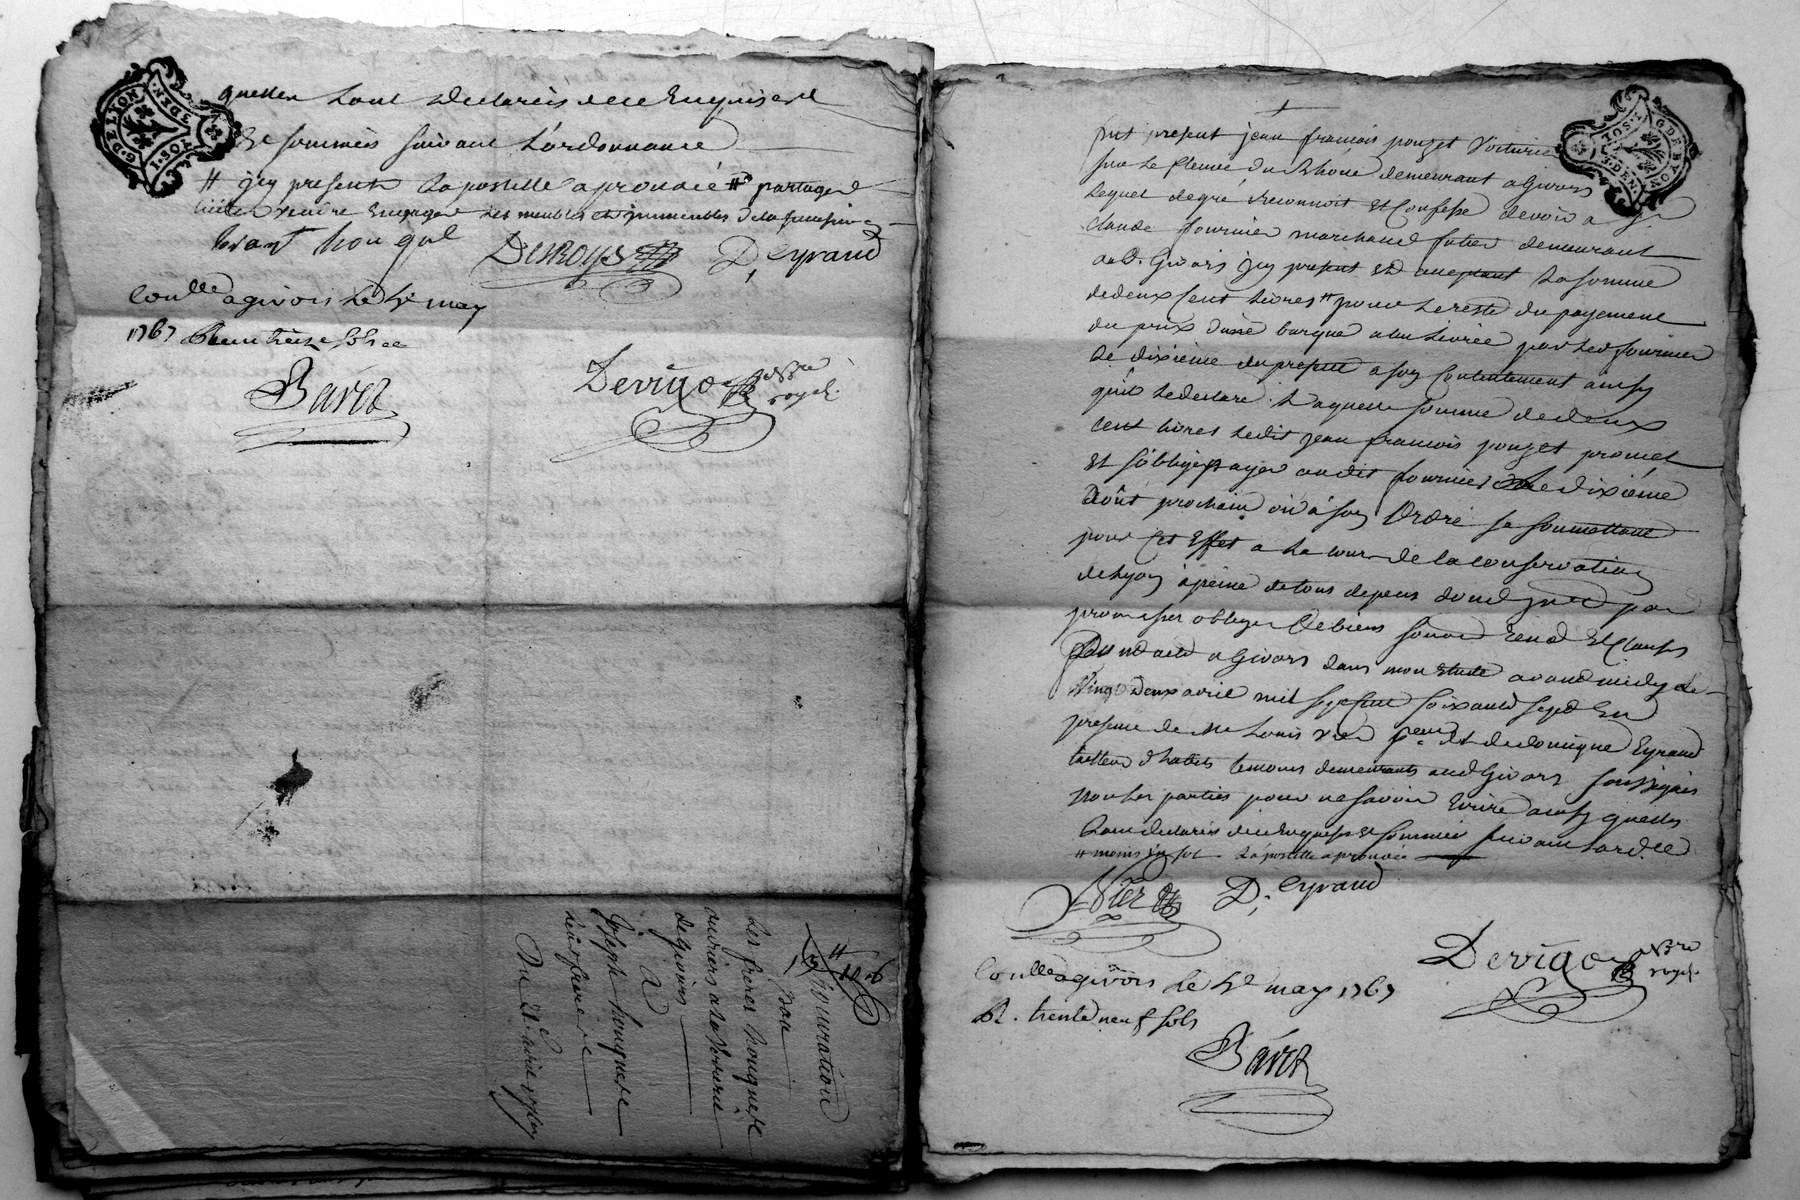 G. DE LYON
3 DEN.
quelles sont declarés de ce Enquis et
et sommés suivant l'ordonnance
# icy presente La postille aprouvée # partager
vendre Engager Les meubles et immeubles de la succession
DESROYS D. eyraud
Coullé a givors le 4e may
1767 Reçu treize sols
Baret
Devigo
nore
royal
Procuration
Les freres houqueste
ouvriers a la Verrerie
de givors
A
Joseph houqueste
leur frere
Du 21e avril 1767
G. DE LYON
3 DEN.
fut present jean francois pouzet Voiturier
sur Le fleuve du Rhone demeurant a Givors
Lequel de gré reconnoit et Confesse devoir a Sr
claude fournier marchand futier demeurant
aud. Givors icy present et acceptant La somme
de deux Cent Livres # pour Le reste du payement
du prix d'une barque a lui Livrée par Led fournier
Le dixième du present a son Contentement ainsy
qu'il Le declare. Laquelle somme de deux
cent Livres Ledit jean francois pouzet promet
et s'oblige payer audit fournier Le dixième
Août prochain où à son Ordre se soumettant
pour Cet Effet a La cour de la conservation
de Lyon à peine de tous depens
promesses obligon de biens soumon renon et Clauses
a Givors dans mon Etude avant midy Le
Vingt Deux avril mil sept Cent soixante sept En
presence de Me Louis Vier et de domique Eyraud
tailleur d'habits temoins demeurants aud Givors soussignés
non Les parties pour ne savoir Ecrire ainsy quelles
sont declarés de ce Enquises et sommées suivant Lordce
# moins un sol La postille aprouvée
Vier D. eyraud
Devigo
nore
royal
Coullé a givors le 4e may 1767
R. trente neuf sols
Baret